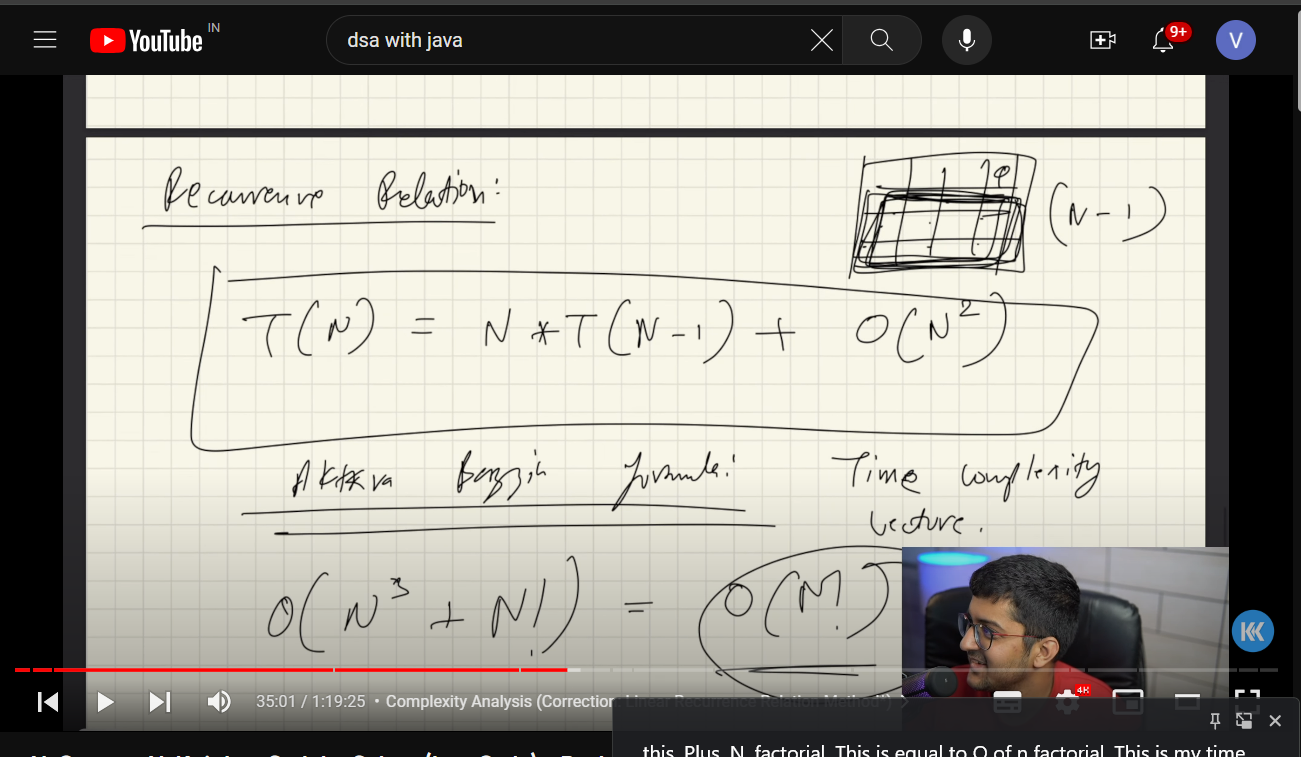 YouTube IN
dsa with java
9+
V
Recurrence Relation:
(N-1)
T(N) = N * T(N-1) + O(N²)
formula:
Time complexity
lecture.
O(N³ + N!) = O(N!)
35:01 / 1:19:25 • Complexity Analysis (Correction: Linear Recurrence Relation Method!)
4K
this. Plus, N, factorial. This is equal to O of n factorial. This is my time